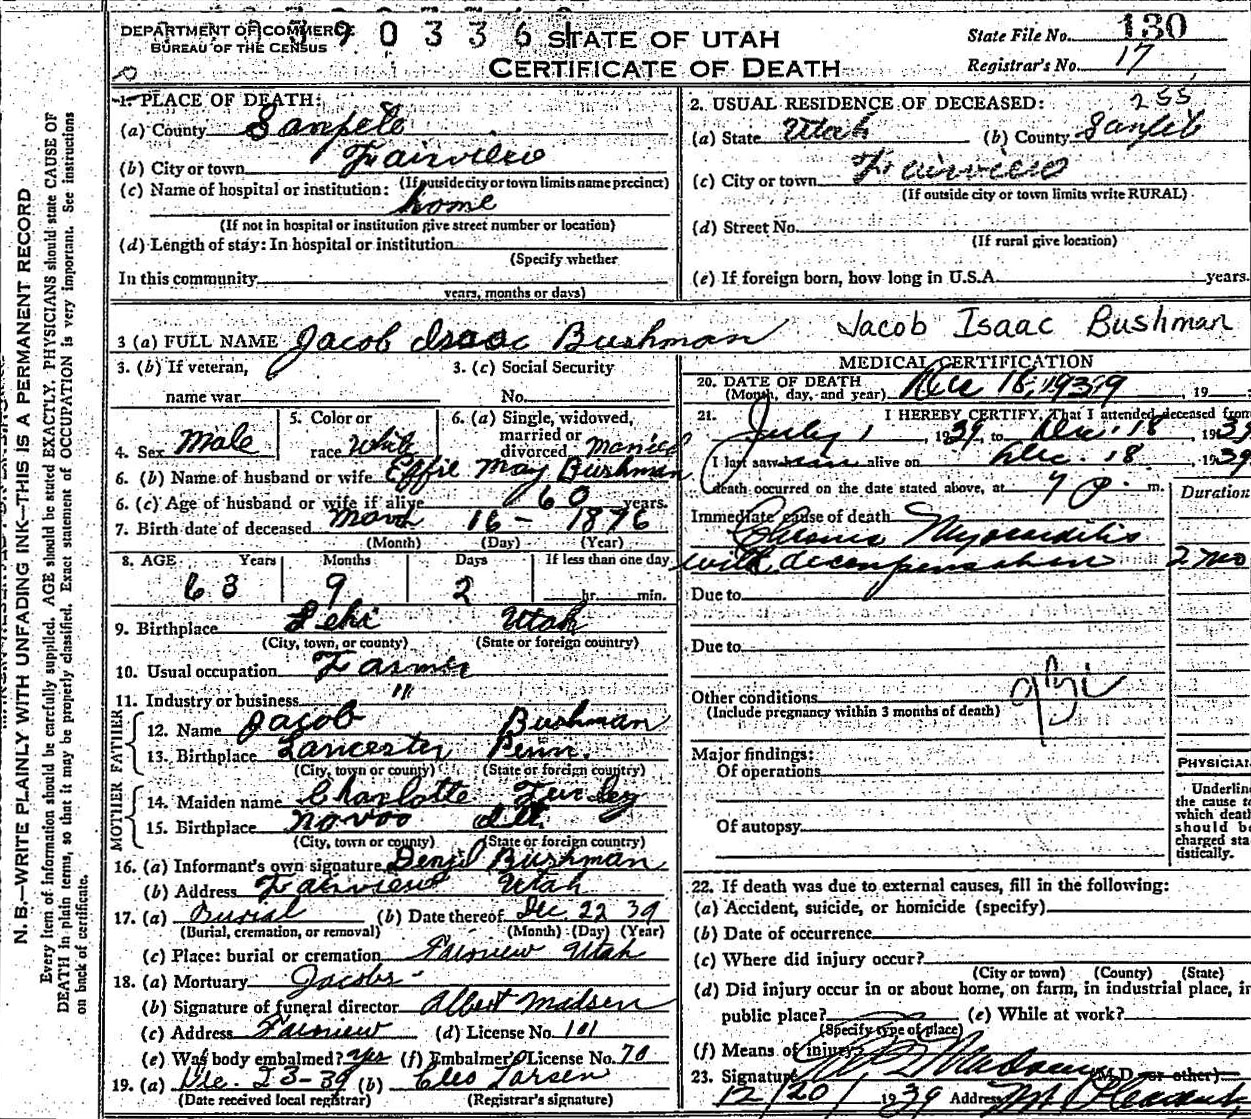 DEPARTMENT OF COMMERCE
BUREAU OF THE CENSUS
390336
STATE OF UTAH
CERTIFICATE OF DEATH
State File No. 130
Registrar's No. 17
1. PLACE OF DEATH:
(a) County Sanpete
(b) City or town Fairview
(If outside city or town limits name precinct)
(c) Name of hospital or institution:
home
(If not in hospital or institution give street number or location)
(d) Length of stay: In hospital or institution
(Specify whether
In this community
years, months or days)
2. USUAL RESIDENCE OF DECEASED: 255
(a) State Utah (b) County Sanpete
(c) City or town Fairview
(If outside city or town limits write RURAL)
(d) Street No.
(If rural give location)
(e) If foreign born, how long in U.S.A. years.
3 (a) FULL NAME Jacob Isaac Bushman Jacob Isaac Bushman
3. (b) If veteran,
name war
3. (c) Social Security
No.
4. Sex Male
5. Color or
race White
6. (a) Single, widowed,
married or
divorced Married
6. (b) Name of husband or wife Effie May Bushman
6. (c) Age of husband or wife if alive 60 years.
7. Birth date of deceased March 16 - 1876
(Month) (Day) (Year)
8. AGE Years Months Days If less than one day
63 9 2 hr. min.
9. Birthplace Lehi Utah
(City, town, or county) (State or foreign country)
10. Usual occupation Farmer
11. Industry or business "
FATHER
12. Name Jacob Bushman
13. Birthplace Lancester Penn.
(City, town or county) (State or foreign country)
MOTHER
14. Maiden name Charlotte Turley
15. Birthplace Novoo Ill.
(City, town or county) (State or foreign country)
16. (a) Informant's own signature Denzil Bushman
(b) Address Fairview Utah
17. (a) Burial (b) Date thereof Dec. 22 39
(Burial, cremation, or removal) (Month) (Day) (Year)
(c) Place: burial or cremation Fairview Utah
18. (a) Mortuary Jacobs -
(b) Signature of funeral director Albert Madsen
(c) Address Fairview (d) License No. 101
(e) Was body embalmed? yes (f) Embalmer's License No. 70
19. (a) Dec. 23-39 (b) Cleo Larsen
(Date received local registrar) (Registrar's signature)
MEDICAL CERTIFICATION
20. DATE OF DEATH
(Month, day, and year) Dec 18, 1939, 19
21. I HEREBY CERTIFY, That I attended deceased from
July 1, 1939, to Dec. 18, 1939
I last saw him alive on Dec. 18, 1939
death occurred on the date stated above, at 7 P. m.
Duration
Immediate cause of death
Chronic Myocarditis
with decompensation 2 mo
Due to
Due to
Other conditions
(Include pregnancy within 3 months of death)
Major findings:
Of operations
Of autopsy
PHYSICIAN
Underline
the cause to
which death
should be
charged sta-
tistically.
22. If death was due to external causes, fill in the following:
(a) Accident, suicide, or homicide (specify)
(b) Date of occurrence
(c) Where did injury occur?
(City or town) (County) (State)
(d) Did injury occur in or about home, on farm, in industrial place, in
public place? (e) While at work?
(Specify type of place)
(f) Means of injury
23. Signature Madsen (M.D. or other)
12/20/1939 Address Mt Pleasant
N. B.—WRITE PLAINLY WITH UNFADING INK—THIS IS A PERMANENT RECORD
Every item of information should be carefully supplied. AGE should be stated EXACTLY. PHYSICIANS should state CAUSE OF
DEATH in plain terms, so that it may be properly classified. Exact statement of OCCUPATION is very important. See instructions
on back of certificate.